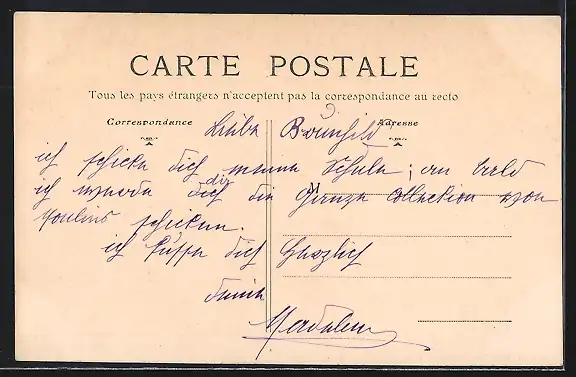 CARTE POSTALE
Tous les pays étrangers n'acceptent pas la correspondance au recto
Correspondance
Adresse
Liebe Brunhild
ich schicke dich meine Schule; an bald
ich werde dich dir die Ganze Collection von
Moulins schicken.
ich küsse dich Herzlich
deine
Madeleine